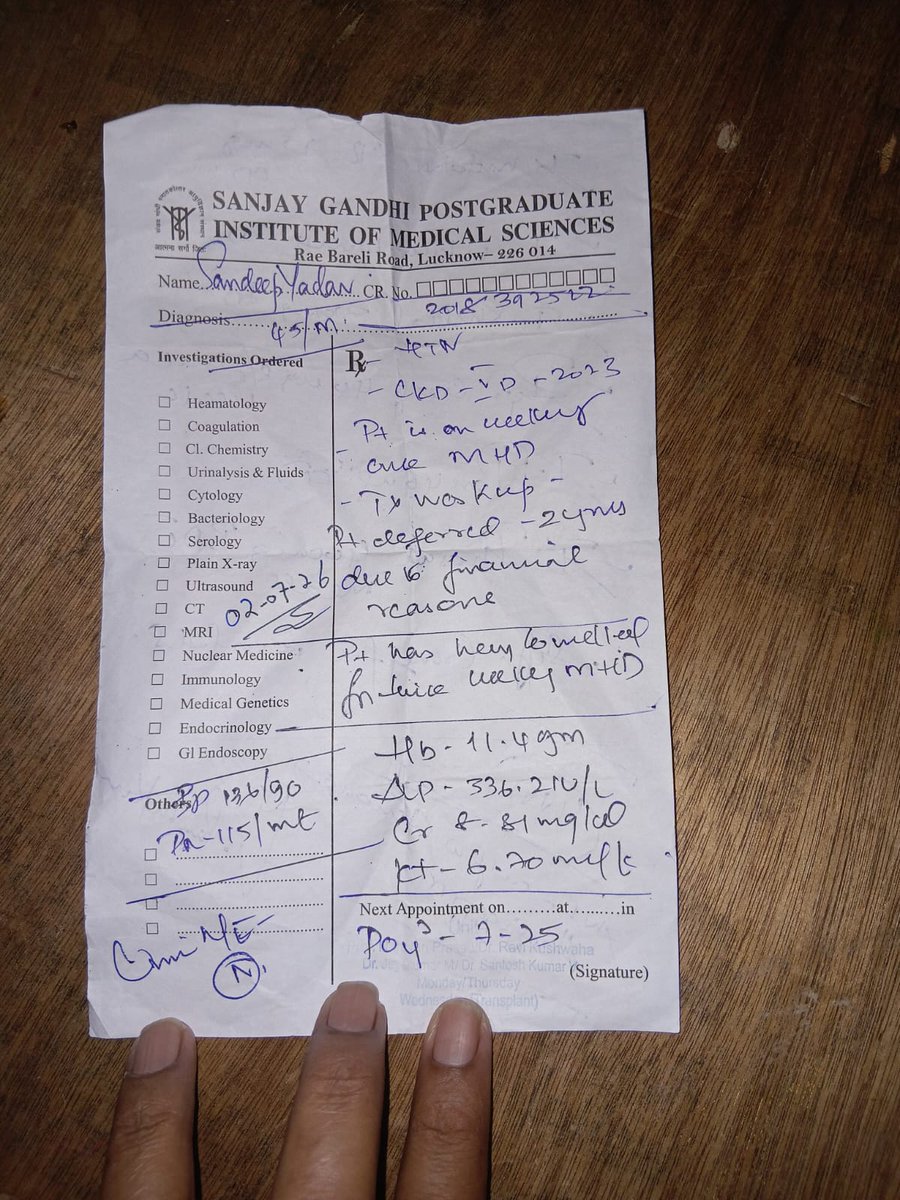 SANJAY GANDHI POSTGRADUATE
INSTITUTE OF MEDICAL SCIENCES
Rae Bareli Road, Lucknow– 226 014
Name. Sandeep Yadav CR. No.
Diagnosis 45/M.
Investigations Ordered
Heamatology
Coagulation
Cl. Chemistry
Urinalysis & Fluids
Cytology
Bacteriology
Serology
Plain X-ray
Ultrasound
CT 02-07-26
MRI
Nuclear Medicine
Immunology
Medical Genetics
Endocrinology
Gl Endoscopy
Others Bp 136/90
115/mt
N
Rx - HTN
- CKD - V D - 2023
- Pt is on weekly
MHD
- Tx workup -
Pt deferred - 2
due to financial
reasons
Pt has
for twice weekly MHD
Hb - 11.4 gm
ALP - 336.2 IU/L
Cr 8.81 mg/dl
K+ - 6.70
Next Appointment on.........at.........in
- 7-25
Kushwaha
Dr. Santosh Kumar
Monday/Thursday
(Signature)